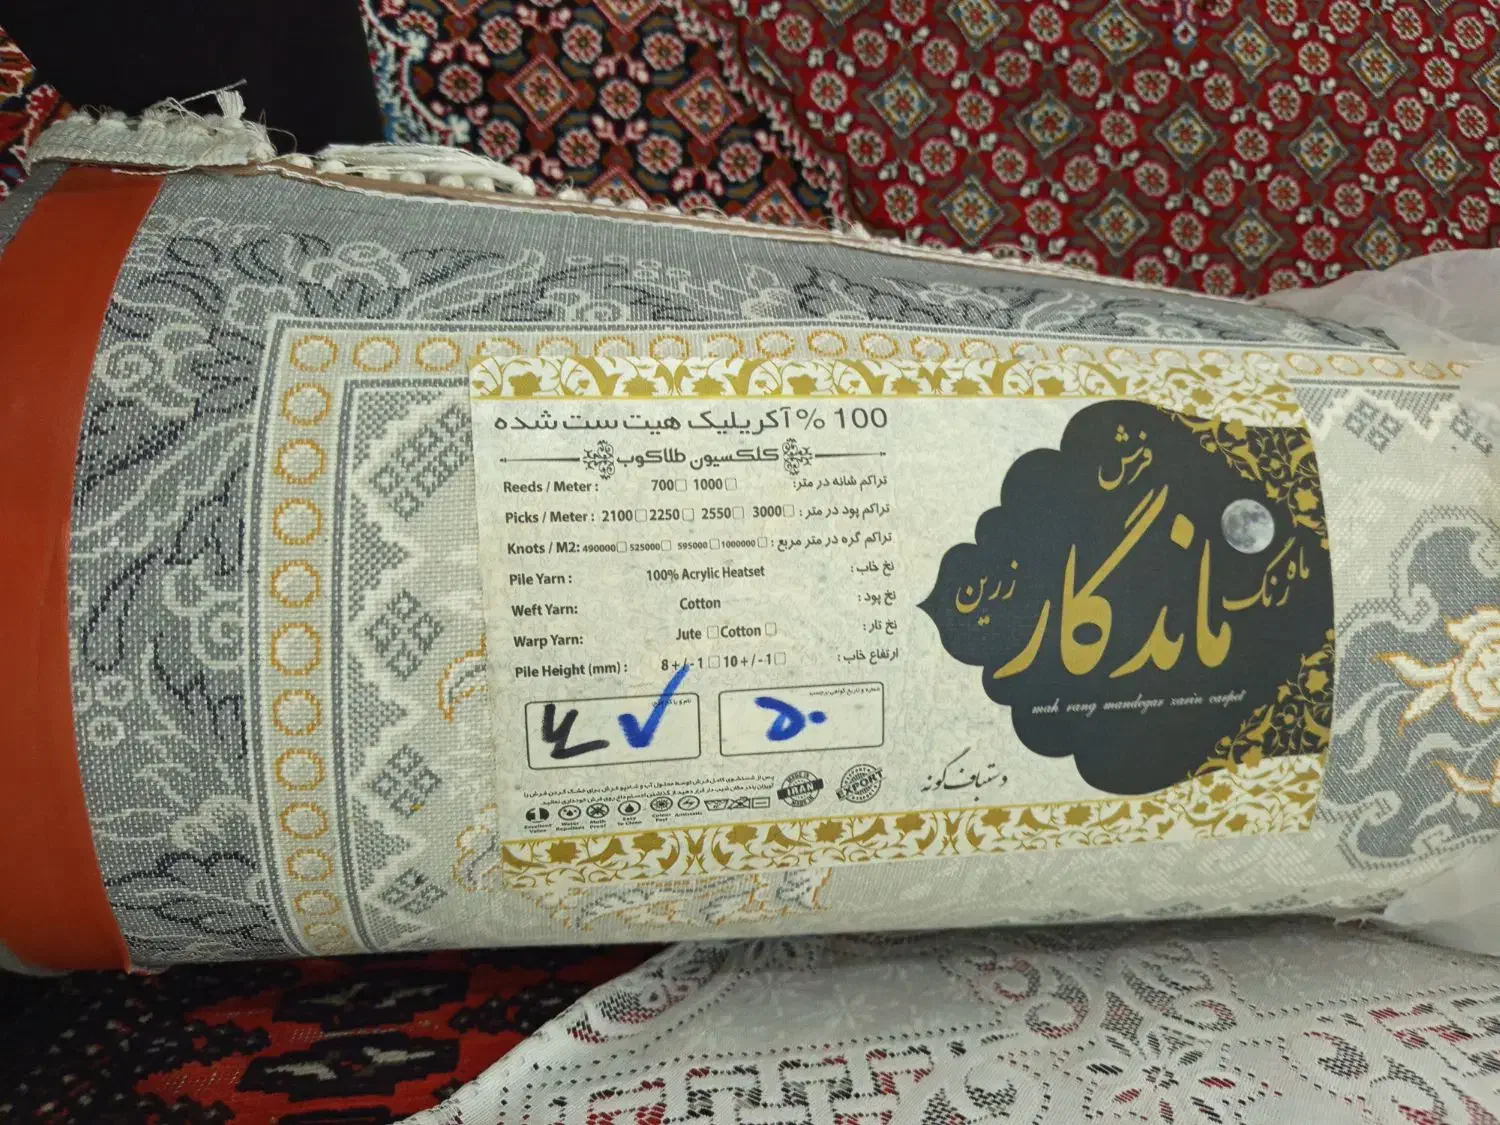 100 % آکریلیک هیت ست شده
کلکسیون طلاکوب
Reeds / Meter : 700☐ 1000☐ تراکم شانه در متر:
Picks / Meter : 2100☐ 2250☐ 2550☐ 3000☐ تراکم پود در متر :
Knots / M2: 490000☐ 525000☐ 595000☐ 1000000☐ تراکم گره در متر مربع :
Pile Yarn : 100% Acrylic Heatset نخ خاب :
Weft Yarn: Cotton نخ پود :
Warp Yarn: Jute ☐ Cotton ☐ نخ تار :
Pile Height (mm) : 8 +/- 1 ☐ 10 +/-1 ☐ ارتفاع خاب :
شماره و تاریخ گواهی برچسب
۵۰
MADE IN
IRAN
EXPORT
Excellent Value
Water Repellent
Moth Proof
Easy To Clean
Colour Fast
Antistatic
فرش
ماندگار
زرین
ماه
رنگ
mah rang mandegar zarin carpet
دستباف گونه